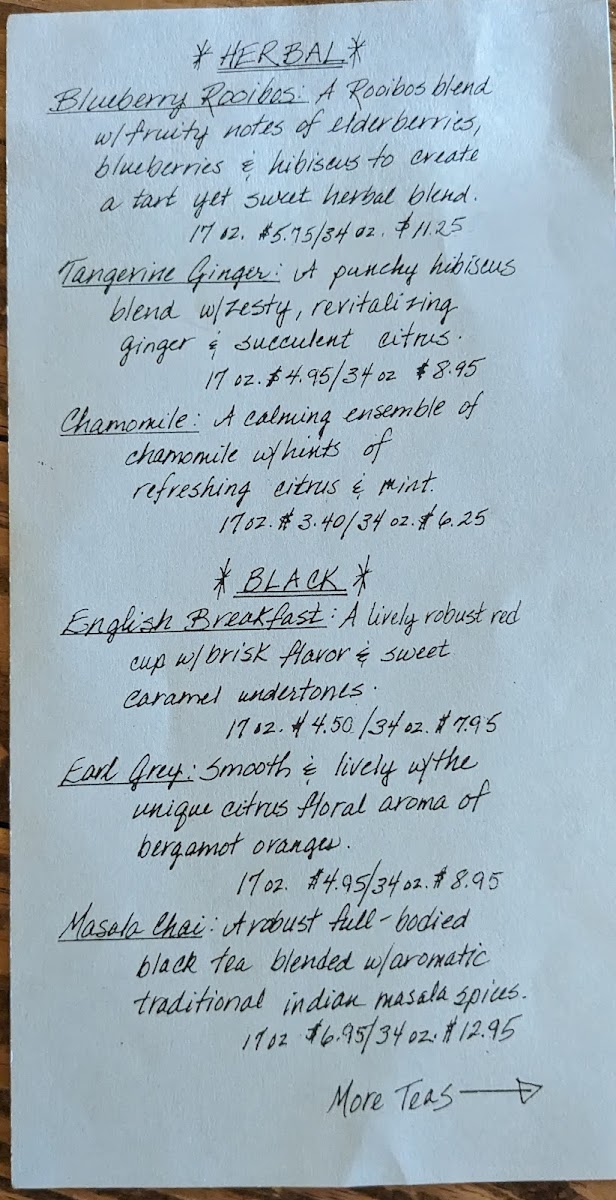 * HERBAL *
Blueberry Rooibos: A Rooibos blend
w/fruity notes of elderberries,
blueberries & hibiscus to create
a tart yet sweet herbal blend.
17 oz. $5.75/34 oz. $11.25
Tangerine Ginger: A punchy hibiscus
blend w/zesty, revitalizing
ginger & succulent citrus.
17 oz. $4.95/34 oz $8.95
Chamomile: A calming ensemble of
chamomile w/hints of
refreshing citrus & mint.
17 oz. $3.40/34 oz. $6.25
* BLACK *
English Breakfast: A lively robust red
cup w/brisk flavor & sweet
caramel undertones.
17 oz. $4.50/34 oz. $7.95
Earl Grey: Smooth & lively w/the
unique citrus floral aroma of
bergamot oranges.
17 oz. $4.95/34 oz. $8.95
Masala Chai: A robust full-bodied
black tea blended w/aromatic
traditional indian masala spices.
17 oz $6.95/34 oz. $12.95
More Teas →